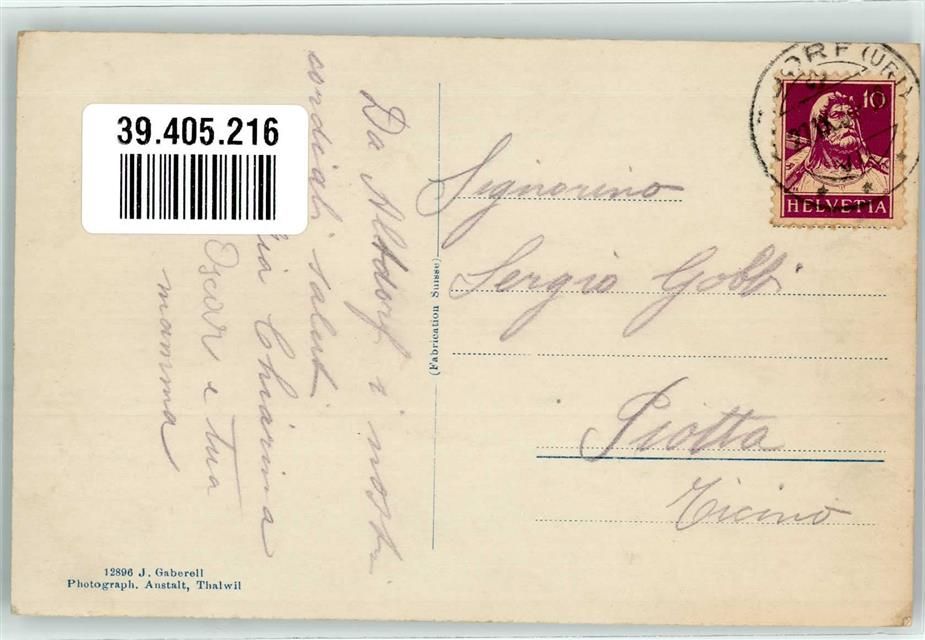 39.405.216
Da Altdorf i nostri
cordiali saluti
Chiarina
Oscar e tua
mamma
(Fabrication Suisse)
Signorino
Sergio Gobbi
Piotta
Ticino
DORF (URI)
10
HELVETIA
12896 J. Gaberell
Photograph. Anstalt, Thalwil